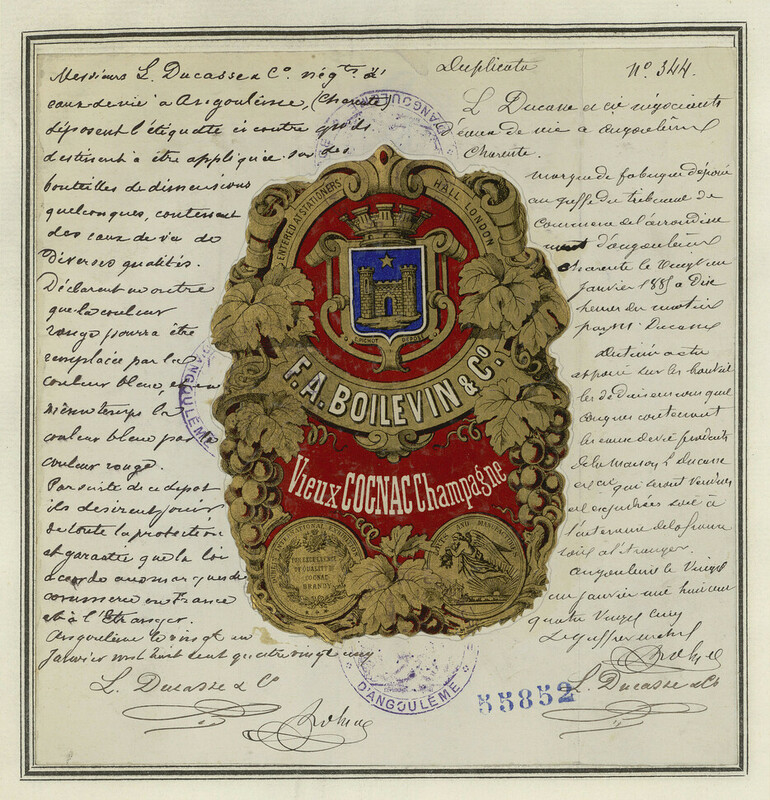 Messieurs L. Ducasse & Cº. négts. d'
eaux de vie à Angoulême, (Charente)
déposent l'étiquette ci contre
destinent à être appliquée sur des
bouteilles de dimensions
quelconques, contenant
des eaux de vie de
diverses qualités.
Déclarent en outre
que la couleur
rouge pourra être
remplacée par la
couleur bleue, et en
même temps la
couleur bleue par la
couleur rouge.
Par suite de ce dépôt
ils désirent jouir
de toute la protection
et garantie que la loi
accorde aux marques de
commerce en France
et à l'Etranger.
Angoulême le vingt un
Janvier mil huit cent quatre vingt cinq.
L. Ducasse & Cº
D'ANGOULÊME
ENTERED AT STATIONERS HALL LONDON
DÉPOSÉ
F.A. BOILEVIN & Cº
Vieux COGNAC Champagne
INTERNATIONAL EXHIBITION
FOR EXCELLENCE
OF QUALITY OF
COGNAC
BRANDY
ARTS AND MANUFACTURES
D'ANGOULÊME
D'ANGOULÊME
Duplicata
Nº. 344.
L. Ducasse et cie négociants
eaux de vie à angoulême
Charente.
marque de fabrique déposée
au greffe du tribunal de
Commerce de l'arrondisse
ment d'angoulême
Charente le vingt un
janvier 1885 à dix
heures du matin
par Mr Ducasse
apposée sur les bouteilles
de dimensions quel
conques contenant
les eaux de vie produits
de la Maison L Ducasse
et cie qui seront vendues
et expédiées soit à
l'intérieur de la france
soit à l'étranger.
angoulême le vingt
un janvier mil huit cent
quatre vingt cinq
L. Ducasse & Cº
55852